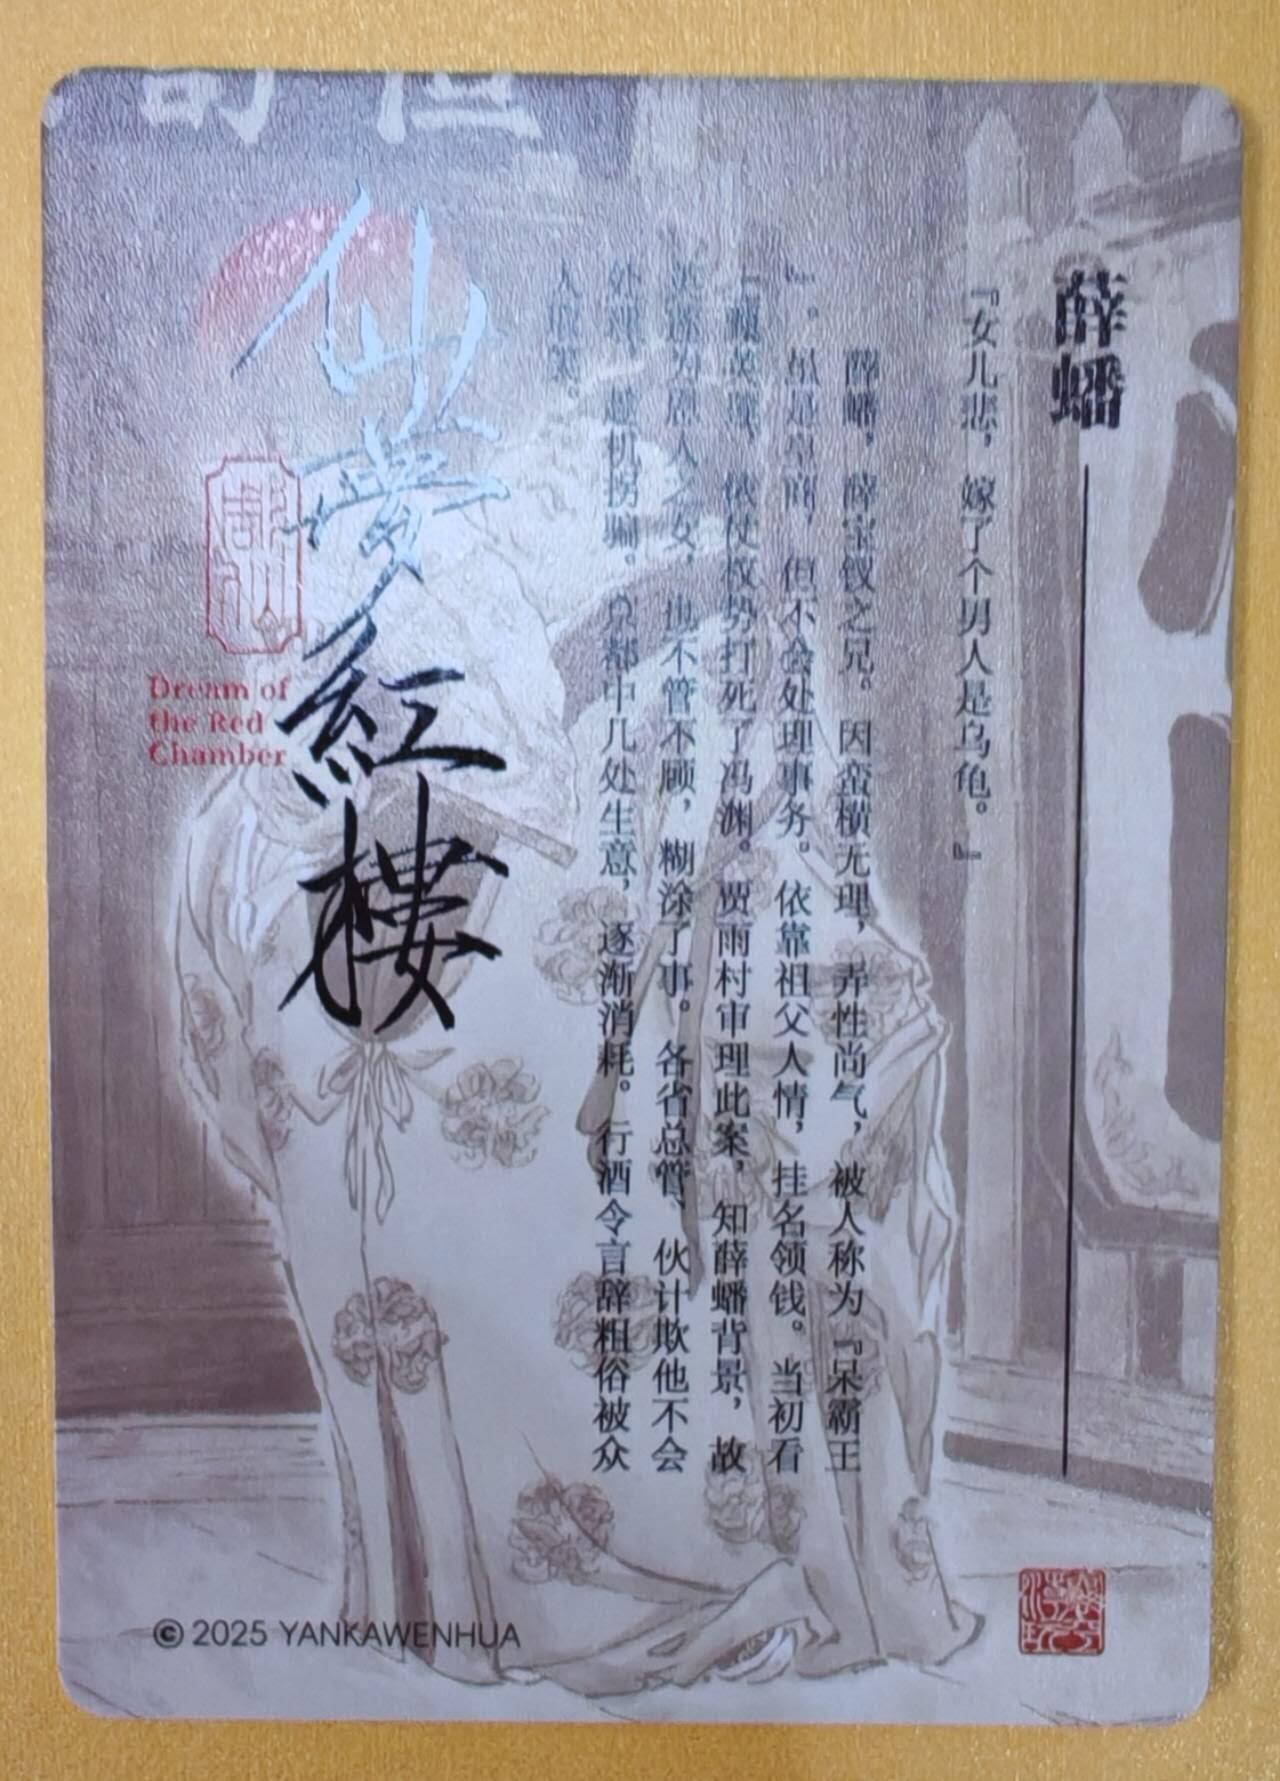 薛蟠
『女儿悲，嫁了个男人是乌龟。』
薛蟠，薛宝钗之兄。因蛮横无理，弄性尚气，被人称为『呆霸王
』。虽是皇商，但不会处理事务。依靠祖父人情，挂名领钱。当初看
上甄英莲，依仗权势打死了冯渊。贾雨村审理此案，知薛蟠背景，故
英莲为恩人之女，也不管不顾，糊涂了事。各省总管、伙计欺他不会
处理，趁机拐骗。京都中几处生意，逐渐消耗。行酒令言辞粗俗被众
人取笑。
仙梦红樓
Dream of
the Red
Chamber
© 2025 YANKAWENHUA